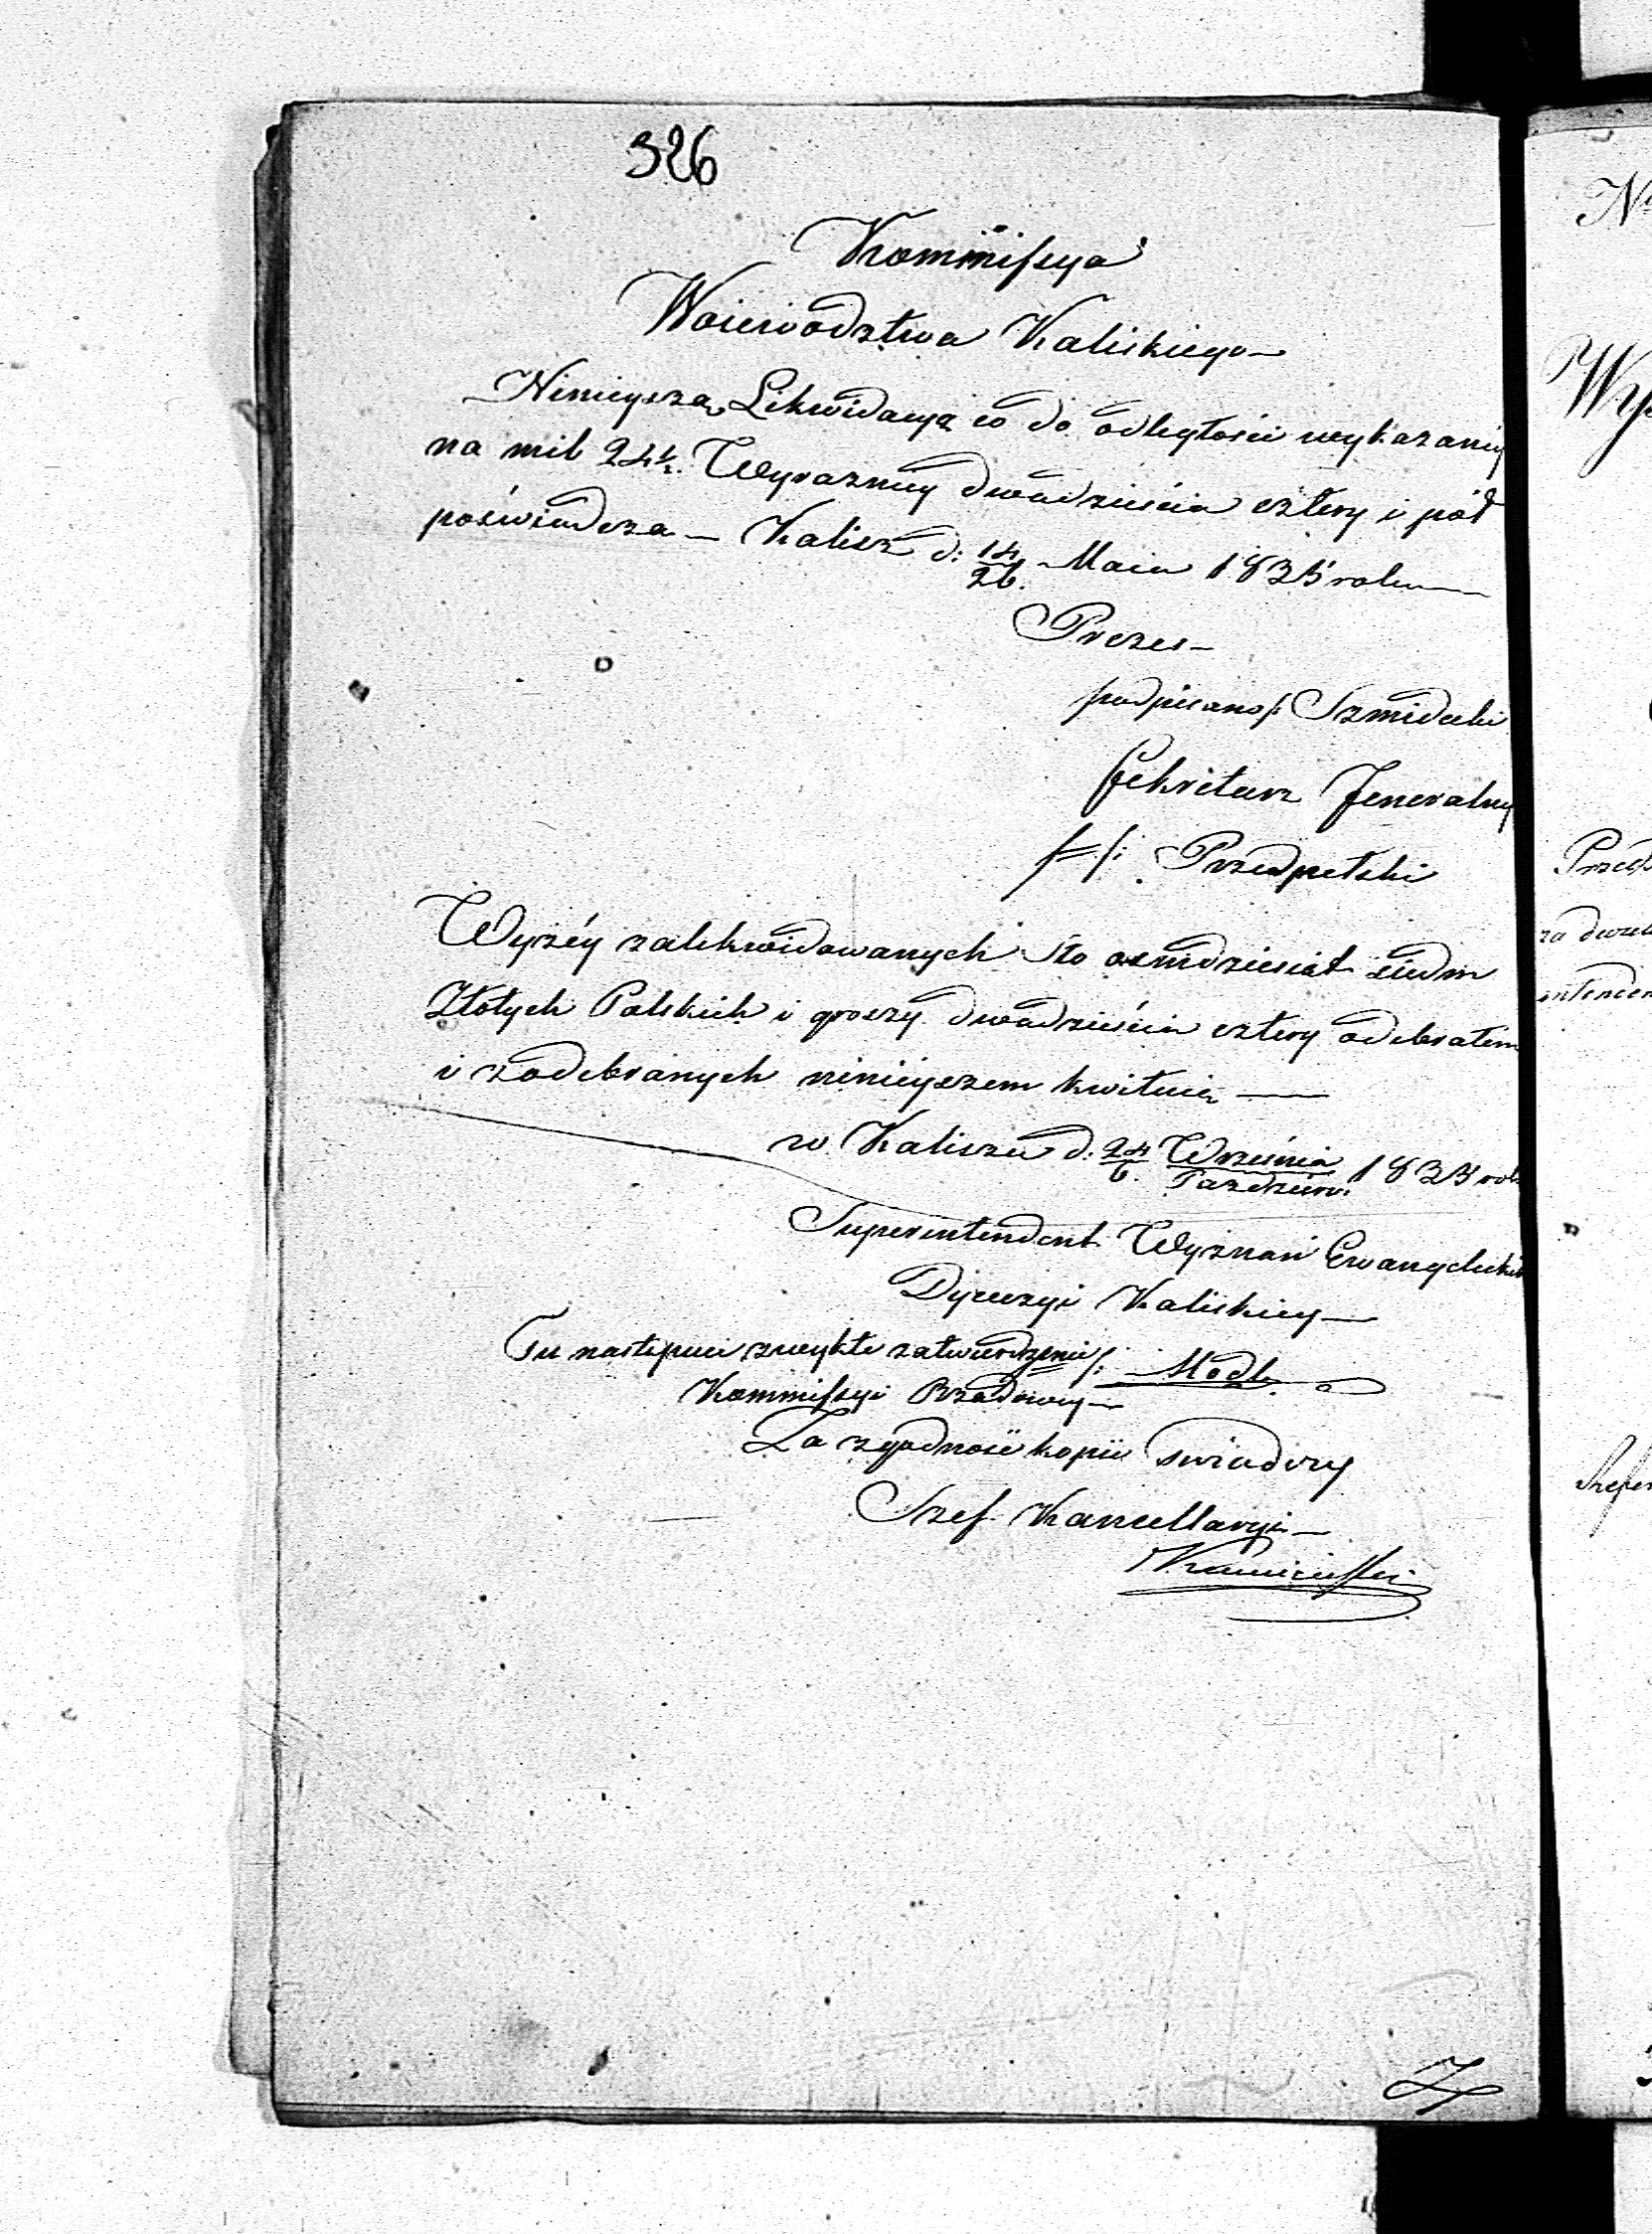 326
Kommissya
Woiewodztwa Kaliskiego
Ninieyszą Likwidacyą co do odległości wykazaney
na mil 24½. Wyrazniey dwadzieścia cztery i pół
poświadcza — Kalisz d: 14/26. Maia 1835 roku
Prezes
podpisano/: Szmidecki
Sekretarz Jeneralny
/=/: Przedpełski
Wyżéy zalikwidowanych Sto osmdziesiąt siedm
Złotych Polskich i groszy dwadzieścia cztery odebrałem
i z odebranych ninieyszem kwituię
w Kaliszu d: 24/6. Września/Pazdzier: 1835 rok
Superintendent Wyznań Ewangelickich
Dyecezyi Kaliskiey
Tu nastepuie zwykłe zatwierdzenie /: Modl
Kommissyi Rządowey
Za zgodność kopii świadczy
Szef Kancellaryi
N
Wy
Przeds
za dwa
intenden
Szefer